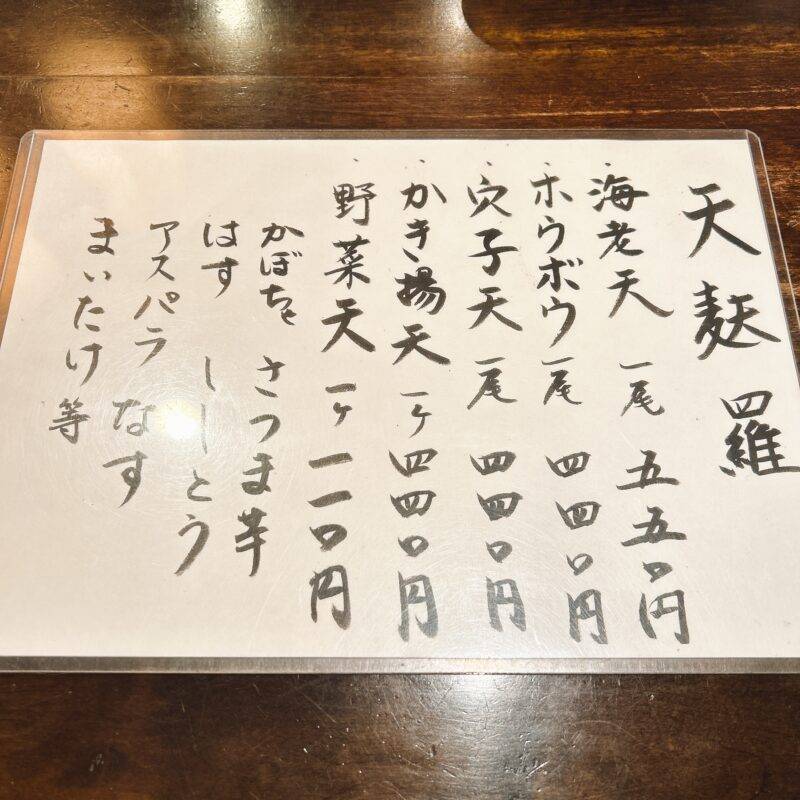 天麩羅
・海老天 一尾 五五〇円
・ホウボウ 一尾 四四〇円
・穴子天 一尾 四四〇円
・かき揚天 一ヶ 四四〇円
・野菜天 一ヶ 一一〇円
かぼちゃ さつま芋
はす ししとう
アスパラ なす
まいたけ 等